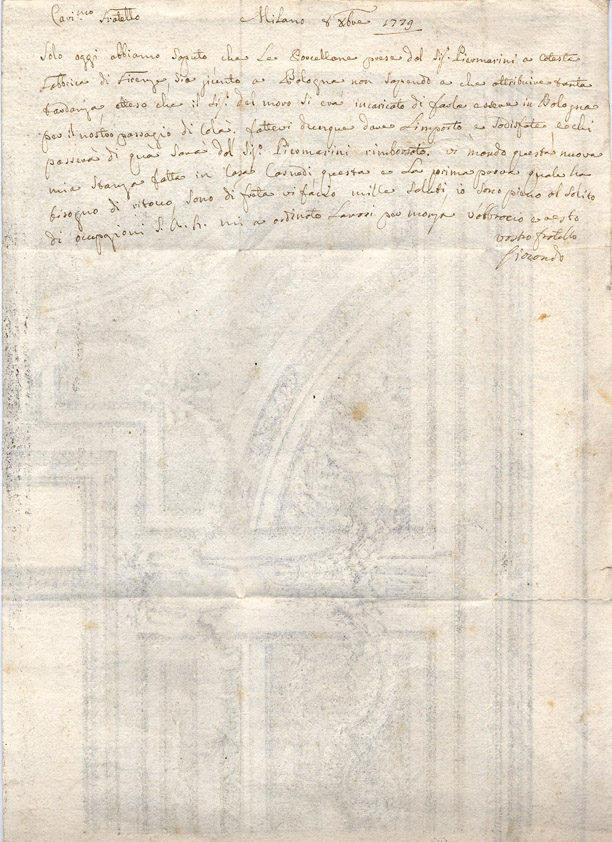 Cariss.mo Fratello Milano 8 Xbre 1779
Solo oggi abbiamo saputo che Le Porcellane prese dal Sig.r Picomarini a cotesta
Fabbrica di Firenze, sia giunto a Bologna non sapendo a che attribuire tanta
tardanza atteso che il Sig.r del moro si era incaricato di farla essere in Bologna
per il nostro passagio di Colà. fattevi dunque dare l'importo e sodisfate e chi
passerà di quà sarà dal Sig.r Picomarini rimborzato. Vi mando questa nuova
mia Stampa fatta in Casa Casnedi questa e La prima prova quale ha
bisogno di ritocco sono di fretta vi faccio mille saluti io Sono pieno al Solito
di occupazioni S. A. R. mi a ordinato Lavori per Monza v'abbraccio e resto
vostro fratello
Giocondo